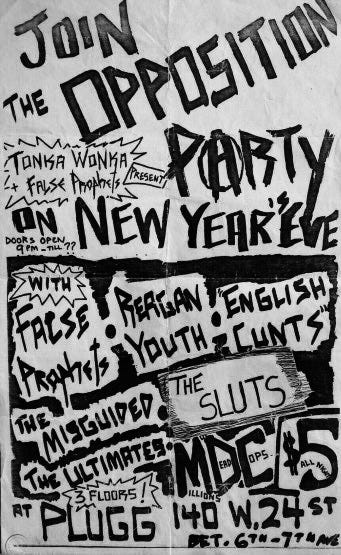 JOIN
THE OPPOSITION
TONKA WONKA
+ FALSE PROPHETS
PRESENT
PARTY
ON NEW YEAR'S EVE
DOORS OPEN
9PM - TILL ??
WITH
FALSE
PROPHETS
REAGAN
YOUTH
"ENGLISH
CUNTS"
THE
SLUTS
THE
MISGUIDED
THE ULTIMATES
MDC
ILLIONS
EAD
OPS
$5
ALL NIGHT
3 FLOORS!
AT PLUGG
140 W. 24 ST
BET. 6TH - 7TH AVE